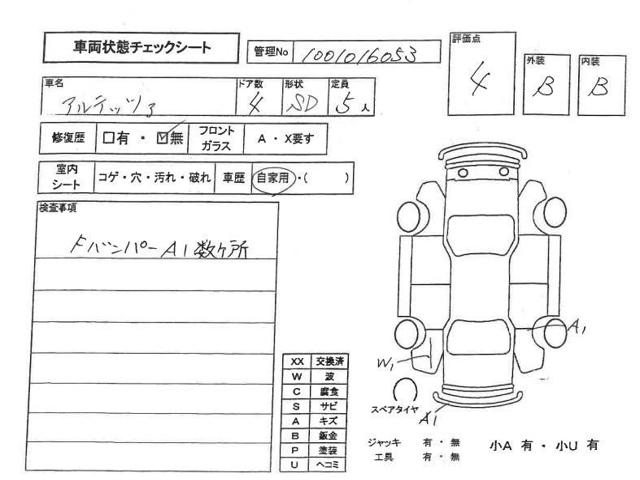 車両状態チェックシート
管理No 1001016053
評価点 4
外装 B
内装 B
車名 アルテッツァ
ドア数 4
形状 SD
定員 5人
修復歴 □有・☑無
フロントガラス A・X要す
室内シート コゲ・穴・汚れ・破れ
車歴 自家用・( )
検査事項
FバンパーA1数ケ所
A1
W1
A1
スペアタイヤ
XX 交換済
W 波
C 腐食
S サビ
A キズ
B 鈑金
P 塗装
U ヘコミ
ジャッキ 有・無
工具 有・無
小A 有・小U 有